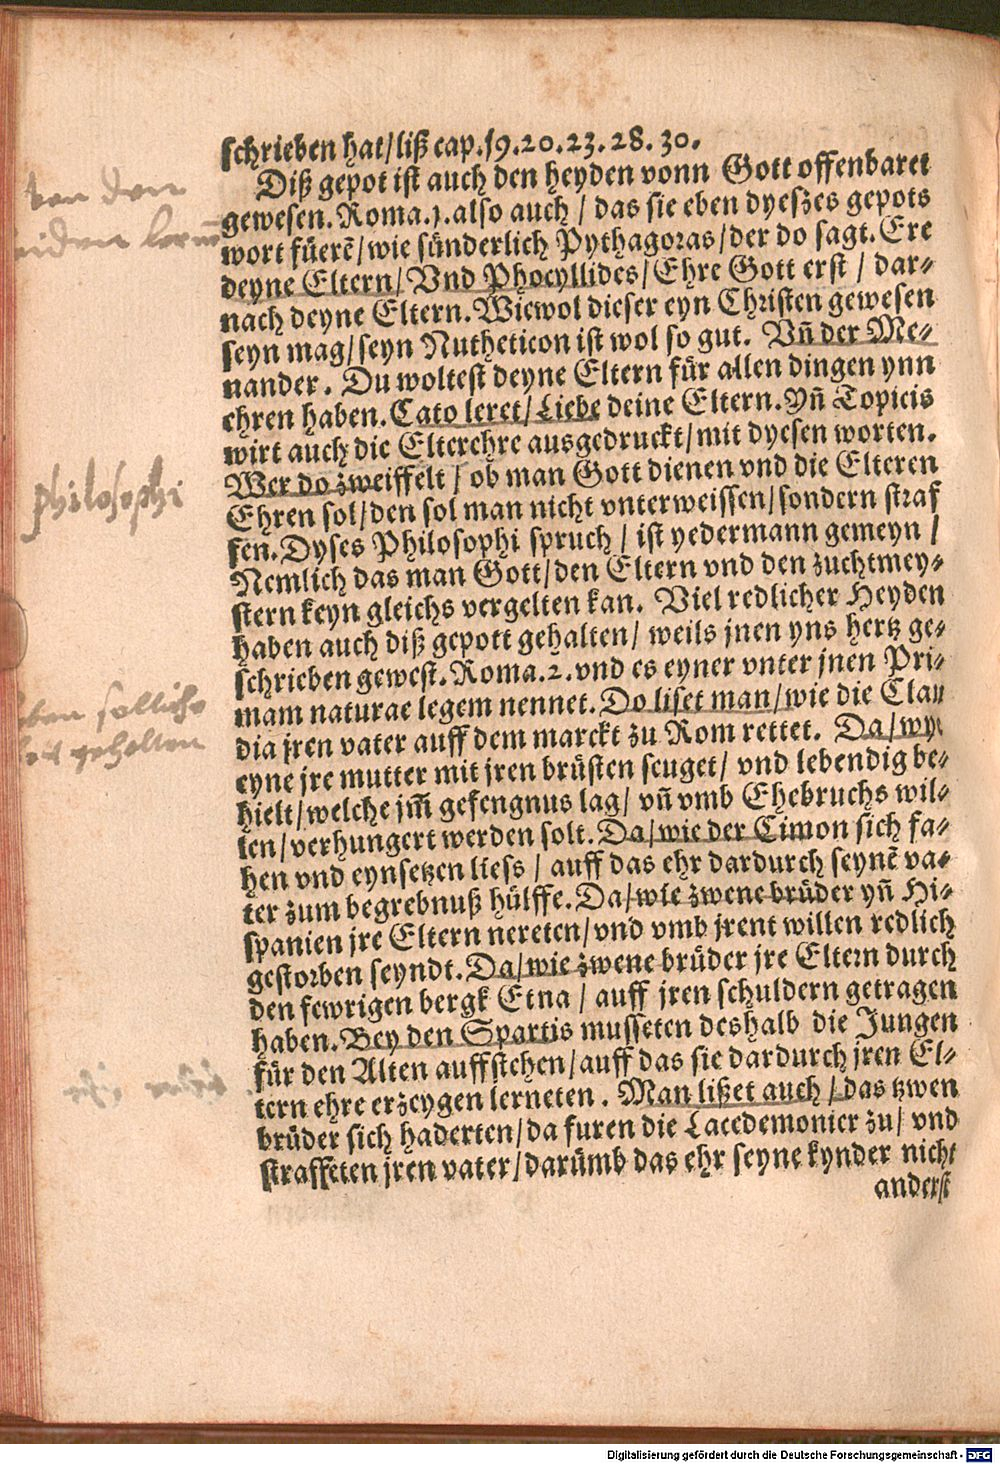 schrieben hat/liß cap.19.20.23.28.30.
Diß gepot ist auch den heyden vonn Gott offenbaret
gewesen. Roma.1.also auch / das sie eben dyeszes gepots
wort füerē/wie sünderlich Pythagoras/der do sagt. Ere
deyne Eltern/ Vnd Phocyllides/ Ehre Gott erst / dar-
nach deyne Eltern. Wiewol dieser eyn Christen gewesen
seyn mag/seyn Nutheticon ist wol so gut. Vñ der Me-
nander. Du woltest deyne Eltern für allen dingen ynn
ehren haben. Cato leret/Liebe deine Eltern. Yñ Topicis
wirt auch die Elterehre ausgedruckt/mit dyesen worten.
Wer do zweiffelt / ob man Gott dienen vnd die Elteren
Ehren sol/den sol man nicht vnterweissen/sondern straf
fen. Dyses Philosophi spruch / ist yedermann gemeyn /
Nemlich das man Gott/den Eltern vnd den zuchtmey-
stern keyn gleichs vergelten kan. Viel redlicher Heyden
haben auch diß gepott gehalten/ weils jnen yns hertz ge-
schrieben gewest. Roma.2.vnd es eyner vnter jnen Pri-
mam naturae legem nennet. Do liset man/wie die Clau
dia jren vater auff dem marckt zu Rom rettet. Da/wye
eyne jre mutter mit jren brüsten seuget/ vnd lebendig be-
hielt/welche jm̄ gefengnus lag/ vñ vmb Ehebruchs wil-
len/verhungert werden solt. Da/wie der Cimon sich fa-
hen vnd eynsetzen liess / auff das ehr dardurch seynē va-
ter zum begrebnuß hülffe. Da/wie zwene brüder yñ Hi-
spanien jre Eltern nereten/vnd vmb jrent willen redlich
gestorben seyndt. Da/wie zwene brüder jre Eltern durch
den fewrigen bergk Etna / auff jren schuldern getragen
haben. Bey den Spartis musseten deshalb die Jungen
für den Alten auffstehen/auff das sie dardurch jren El-
tern ehre erzeygen lerneten. Man lißet auch / das tzwen
brüder sich haderten/da furen die Lacedemonier zu/ vnd
straffeten jren vater/darümb das ehr seyne kynder nicht
anderst
von den
philosophi
gehalten
Digitalisierung gefördert durch die Deutsche Forschungsgemeinschaft - DFG